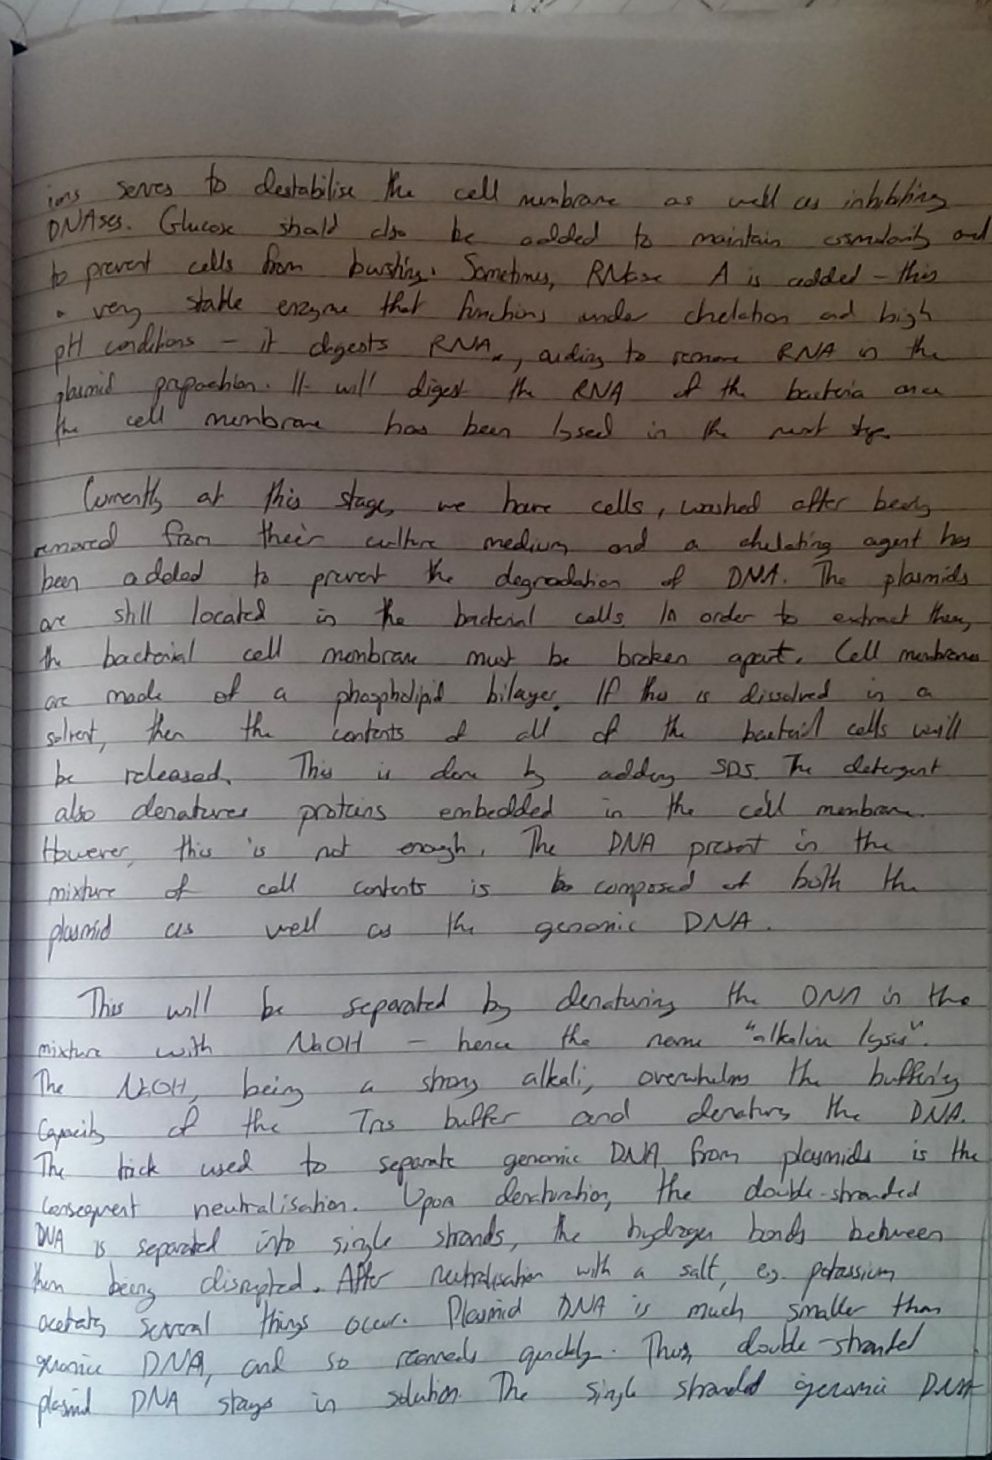 ions serves to destabilise the cell membrane as well as inhibiting
DNAses. Glucose should also be added to maintain osmolarity and
to prevent cells from bursting. Sometimes, RNase A is added - this
a very stable enzyme that functions under chelation and high
pH conditions - it digests RNA, aiding to remove RNA in the
plasmid preparation. It will digest the RNA of the bacteria once
the cell membrane has been lysed in the next stage.
Currently at this stage, we have cells, washed after being
removed from their culture medium, and a chelating agent has
been added to prevent the degradation of DNA. The plasmids
are still located in the bacterial cells. In order to extract them,
the bacterial cell membrane must be broken apart. Cell membranes
are made of a phospholipid bilayer. If this is dissolved in a
solvent, then the contents of all of the bacterial cells will
be released. This is done by adding SDS. The detergent
also denatures proteins embedded in the cell membrane.
However, this is not enough. The DNA present in the
mixture of cell contents is composed of both the
plasmid as well as the genomic DNA.
This will be separated by denaturing the DNA in the
mixture with NaOH - hence the name "alkaline lysis".
The NaOH, being a strong alkali, overwhelms the buffering
capacity of the Tris buffer and denatures the DNA.
The trick used to separate genomic DNA from plasmids is the
consequent neutralisation. Upon denaturation, the double-stranded
DNA is separated into single strands, the hydrogen bonds between
them being disrupted. After neutralisation with a salt, eg. potassium
acetate, several things occur. Plasmid DNA is much smaller than
genomic DNA, and so reanneals quickly. Thus, double-stranded
plasmid DNA stays in solution. The single stranded genomic DNA